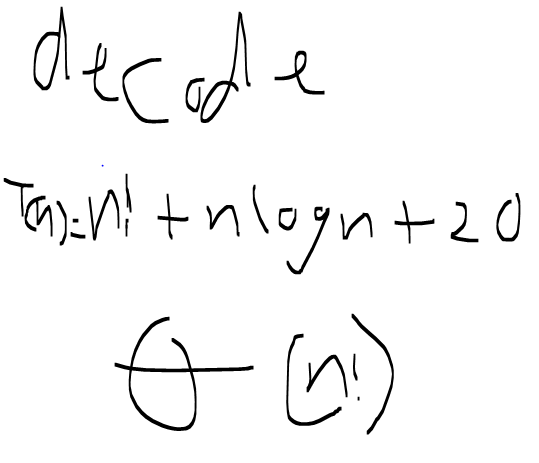 decode
T(n)=n!+nlogn+20
Θ(n!)